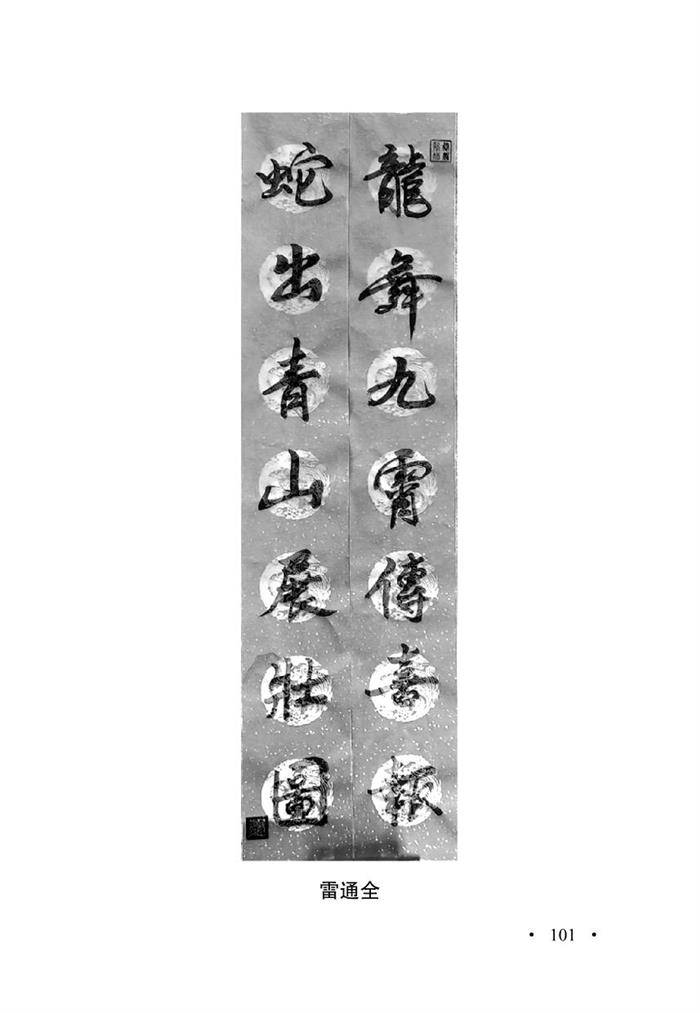 龍舞九霄傳喜報
蛇出青山展壯圖
雷通全
· 101 ·